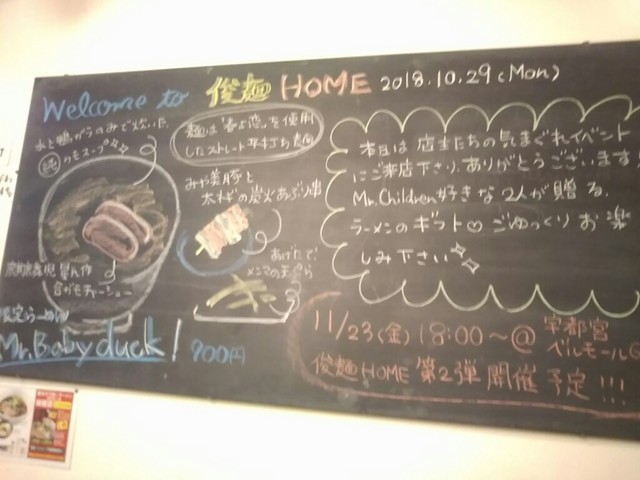 Welcome to 俊麺 HOME 2018.10.29 (Mon)
水と鴨がらのみで炊いた
純 カモスープ
麺は「春よ恋」を使用
したストレート平打ち麺
みや美豚と
太ネギの炭火あぶり串
あげたて
メンマの天ぷら
合ガモチャーシュー
限定らーめん
Mr. Baby duck! 900円
本日は店主たちの気まぐれイベント
にご来店下さり、ありがとうございます!
Mr.Children好きな2人が贈る、
ラーメンのギフト♡ ごゆっくりお楽
しみ下さい
11/23(金) 18:00〜@ 宇都宮
ベルモール
俊麺HOME 第2弾 開催予定!!!